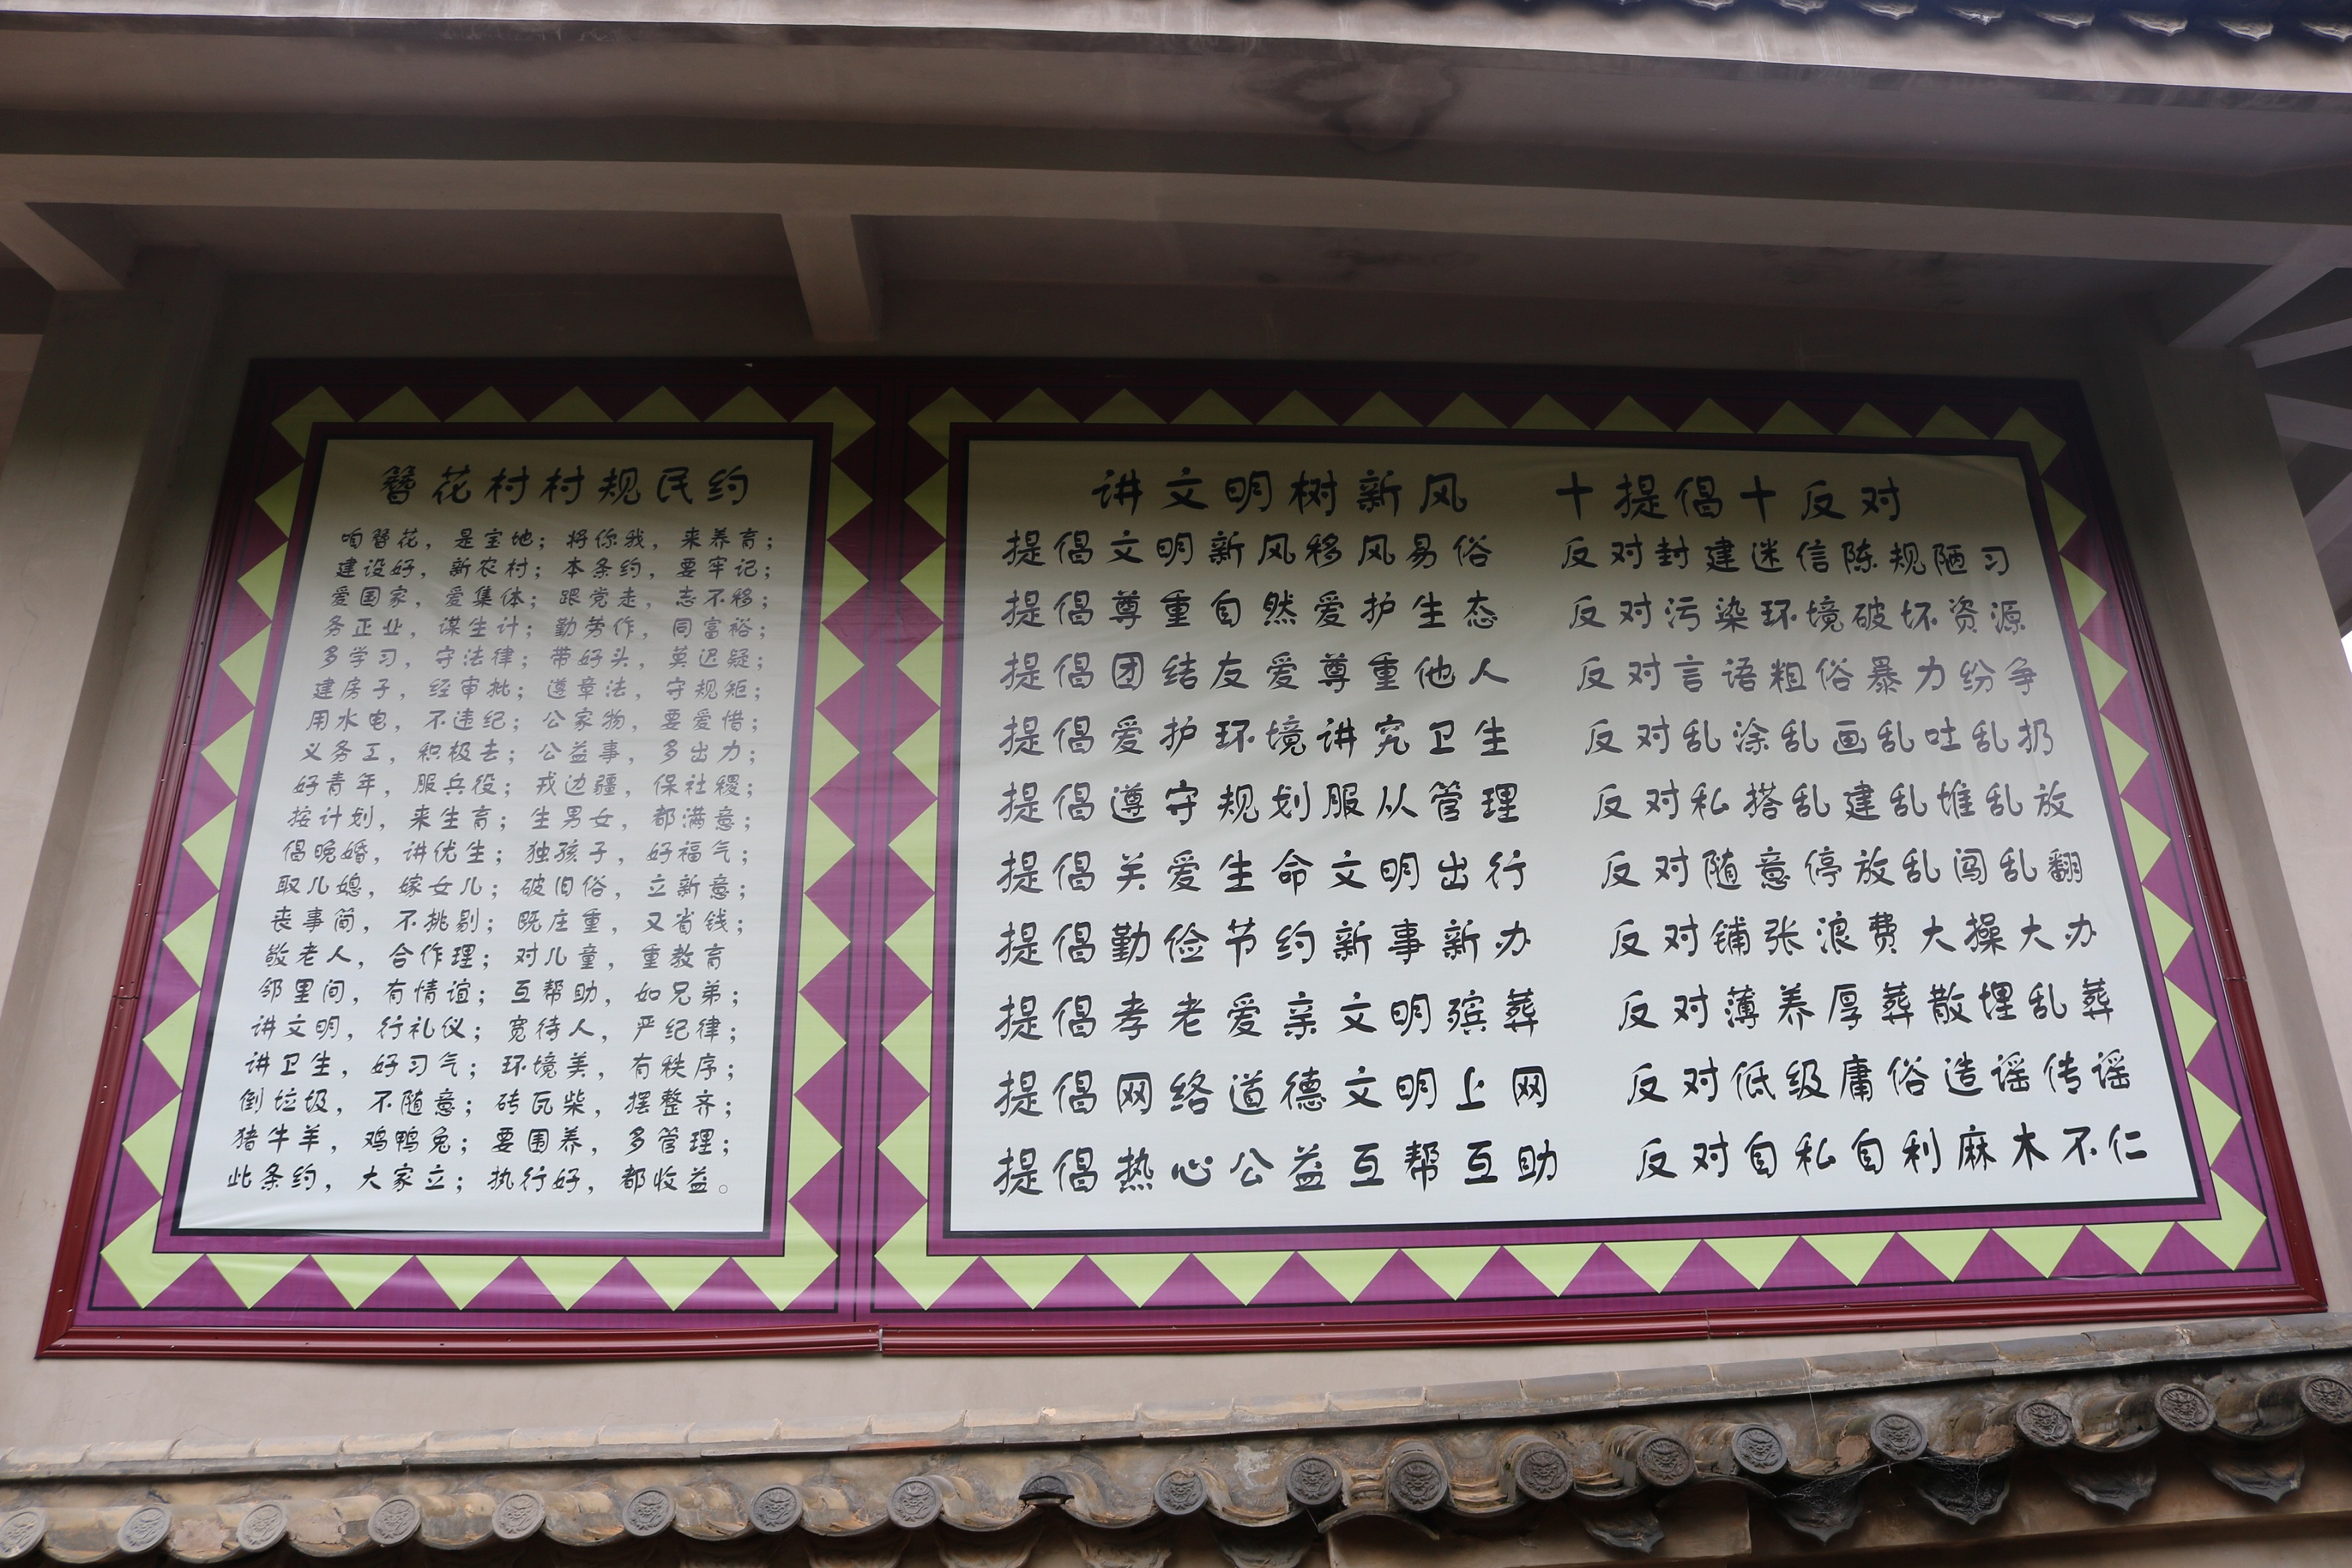 簪花村村规民约
咱簪花，是宝地；将你我，来养育；
建设好，新农村；本条约，要牢记；
爱国家，爱集体；跟党走，志不移；
务正业，谋生计；勤劳作，同富裕；
多学习，守法律；带好头，莫迟疑；
建房子，经审批；遵章法，守规矩；
用水电，不违纪；公家物，要爱惜；
义务工，积极去；公益事，多出力；
好青年，服兵役；戎边疆，保社稷；
按计划，来生育；生男女，都满意；
倡晚婚，讲优生；独孩子，好福气；
取儿媳，嫁女儿；破旧俗，立新意；
丧事简，不挑剔；既庄重，又省钱；
敬老人，合作理；对儿童，重教育
邻里间，有情谊；互帮助，如兄弟；
讲文明，行礼仪；宽待人，严纪律；
讲卫生，好习气；环境美，有秩序；
倒垃圾，不随意；砖瓦柴，摆整齐；
猪牛羊，鸡鸭兔；要围养，多管理；
此条约，大家立；执行好，都收益。
讲文明树新风 十提倡十反对
提倡文明新风移风易俗 反对封建迷信陈规陋习
提倡尊重自然爱护生态 反对污染环境破坏资源
提倡团结友爱尊重他人 反对言语粗俗暴力纷争
提倡爱护环境讲究卫生 反对乱涂乱画乱吐乱扔
提倡遵守规划服从管理 反对私搭乱建乱堆乱放
提倡关爱生命文明出行 反对随意停放乱闯乱翻
提倡勤俭节约新事新办 反对铺张浪费大操大办
提倡孝老爱亲文明殡葬 反对薄养厚葬散埋乱葬
提倡网络道德文明上网 反对低级庸俗造谣传谣
提倡热心公益互帮互助 反对自私自利麻木不仁